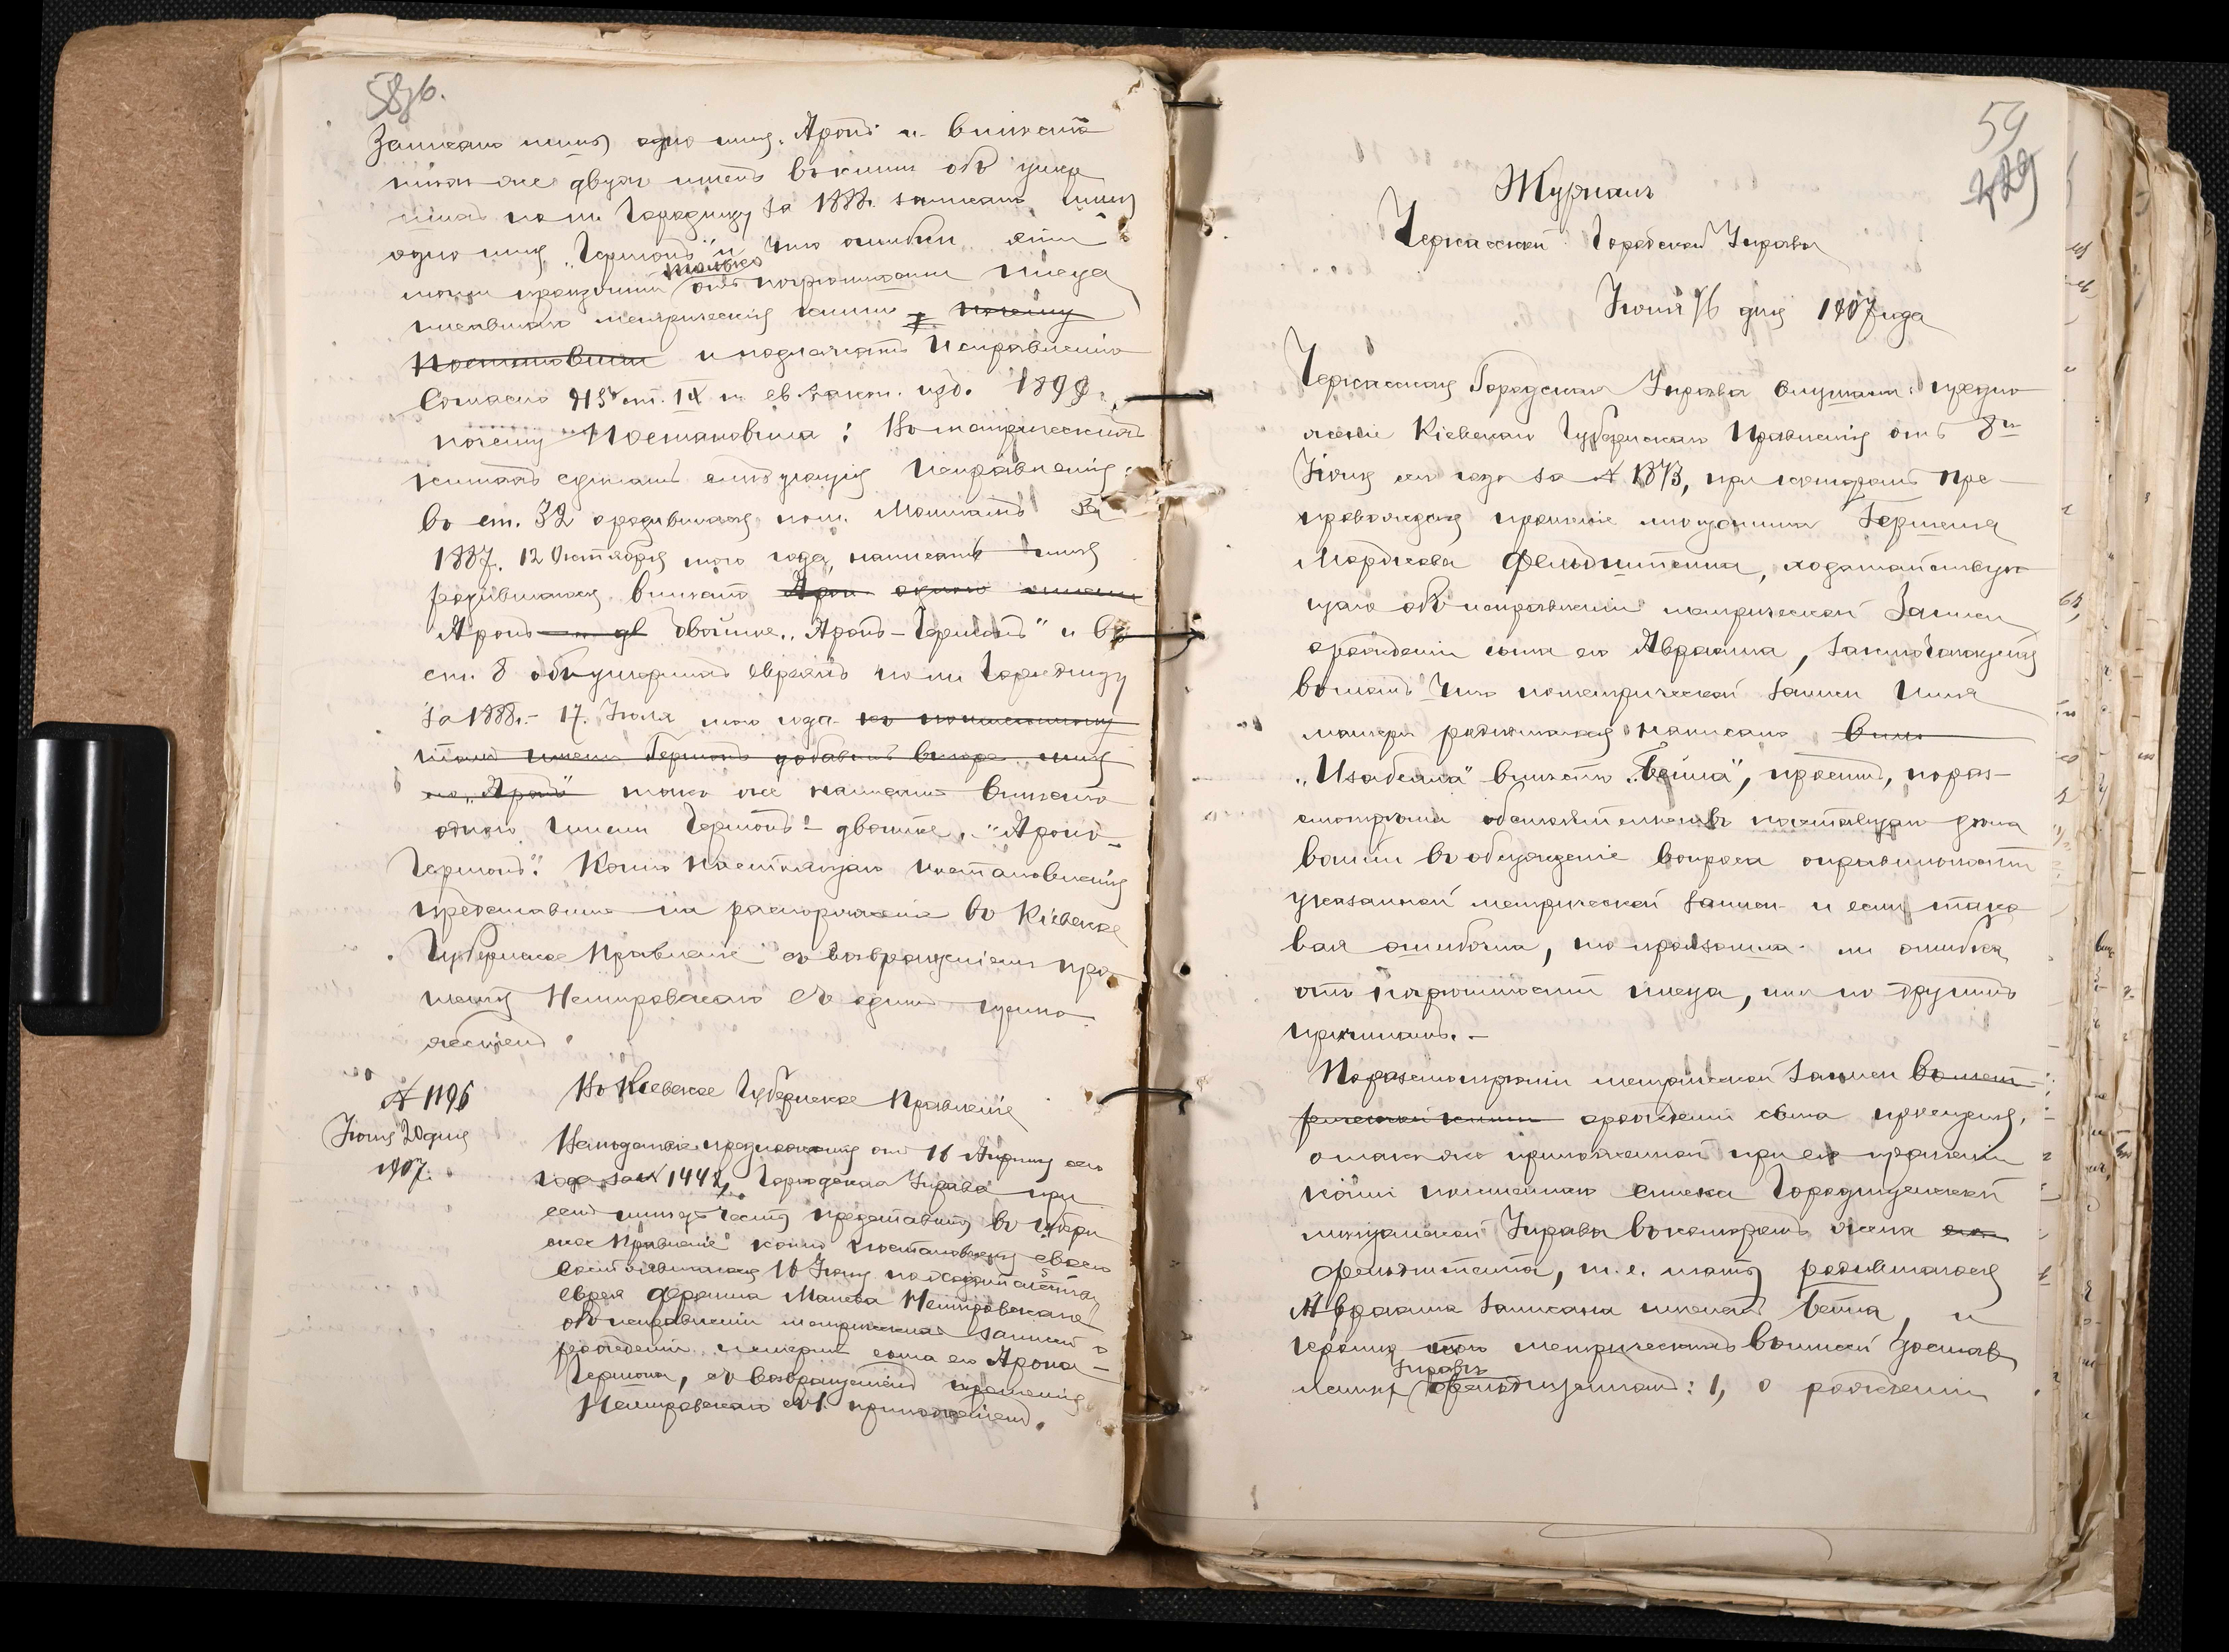 58 об.
Записано лишь одно имя „Аронъ и вмѣсто
тѣхъ же двухъ именъ въ книгѣ объ умер
шихъ по м. Городищу за 1888 г. записано лишь
одно имя „Гершонъ" и что ошибки эти
могли произойти только отъ погрѣшности писца
писавшаго метрическія книги, почему
Постановили и подлежатъ исправленію
Согласно 915 ст. IX т. св. закон. изд. 1899 г.,
почему Постановила: Въ метрическихъ
книгахъ сдѣлать слѣдующія исправленія:
въ ст. 32 о родившихся по м. Мошнамъ за
1887. 12 Октября того года, написать имя
родившагося вмѣсто Арон одного имени
Аронъ дв двойное „Аронъ-Гершонъ" и въ
ст. 8 объ умершихъ евреяхъ по м. Городищу
за 1888 г. – 17 Іюля того года къ написанному
тамъ имени Гершонъ добавить вторе имя
его „Аронъ" тоже же написать вмѣсто
одного имени Гершонъ – двойное „Аронъ-
Гершонъ". Копію настоящаго постановленія
представить на распоряженіе въ Кіевское
Губернское Правленіе съ возвращеніемъ про
шенія Немировскаго съ однимъ прило
женіемъ.
№ 1196
Іюня 20 дня
1907.
Въ Кіевское Губернское Правленіе
Въ исполненіе предложенія отъ 16 Апрѣля сего
года за № 1442, Городская Управа при
семъ имѣетъ честь представить въ Губерн
ское Правленіе копію постановленія своего
состоявшагося 16 Іюня по ходатайству
еврея Фроима Манева Немировскаго
объ исправленіи метрическихъ записей о
рожденіи и смерти сына его Арона-
Гершона, съ возвращеніемъ прошенія
Немировскаго съ 1 приложеніемъ.
59
Журналъ
Черкасской Городской Управы
Іюня 16 дня 1907 года
Черкасская Городская Управа слушала: предло
женіе Кіевскаго Губернскаго Правленія отъ 8го
Іюня сего года за № 1873, при которомъ пре-
провождено прошеніе мѣщанина Гершеня
Мордкова Фельдштейна, ходатайствую
щаго объ исправленіи метрической записи
о рожденіи сына его Авраама, заключающуюся
въ томъ что по метрической записи имя
матери родившагося написано вмѣ
„Изабелла" вмѣсто „Бейла", проситъ, по раз-
смотрѣніи обстоятельствъ настоящаго дѣла
войти въ обсужденіе вопроса о правильности
указанной метрической записи и если тако
вая ошибочна, то произошла ли ошибка
отъ погрѣшности писца, или по другимъ
причинамъ. –
По разсмотрѣніи метрической записи въ мет
рической книгѣ о рожденіи сына просителя,
а также приложенной при его прошеніи
копіи посемейнаго списка Городищенской
мѣщанской Управы въ которомъ жена его
Фельдштейна, т. е. мать родившагося
Авраама записана именемъ Бейла, и
метрическихъ выписей достав
ленныхъ Управѣ Фельдштейномъ: 1, о рожденіи